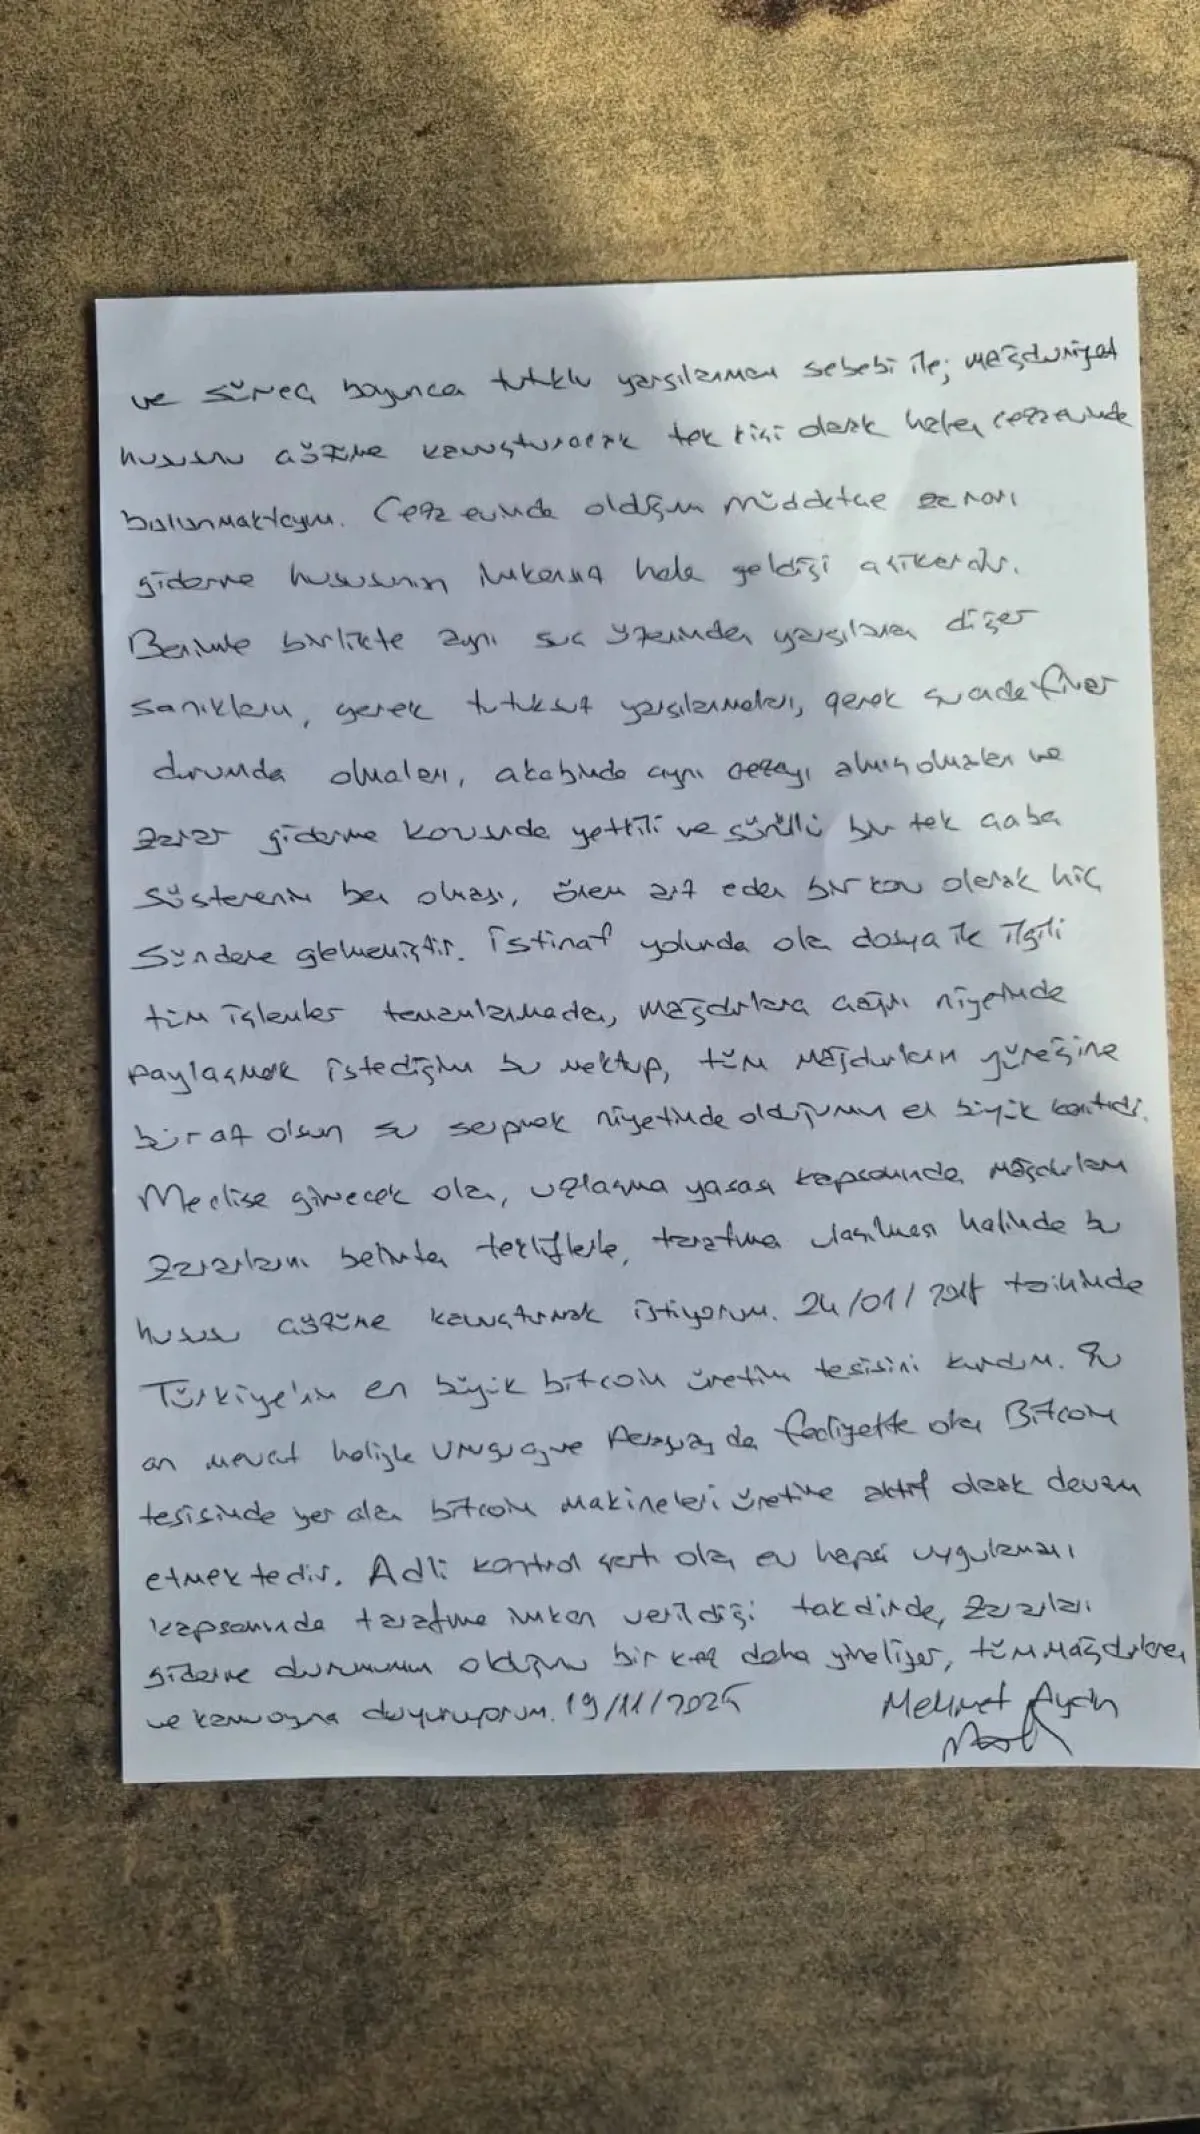 ve süreç boyunca tutuklu yargılanmam sebebi ile; mağduriyet
hususunu çözüme kavuşturacak tek kişi olarak halen cezaevinde
bulunmaktayım. Cezaevinde olduğum müddetçe zararı
giderme hususunun imkansız hale geldiği aşikardır.
Benimle birlikte aynı suç üzerinden yargılanan diğer
sanıkların, gerek tutuksuz yargılanmaları, gerek şu anda firar
durumda olmaları, akabinde aynı cezayı almış olmaları ve
zarar giderme konusunda yettili ve sürülü bir tek çaba
gösterenin ben olması, önem arz eden bir konu olarak hiç
gündeme gelmemiştir. İstinaf yolunda olan dosya ile ilgili
tüm işlemler tamamlanmadan, mağdurlara çağrı niyetinde
paylaşmak istediğim bu mektup, tüm mağdurların yüreğine
bir az olsun su serpmek niyetinde olduğumun en büyük kanıtıdır.
Meclise girecek olan, uzlaşma yasası kapsamında mağdurların
zararlarını belirten tekliflerle, tarafıma ulaşılması halinde bu
hususu çözüme kavuşturmak istiyorum. 24/01/2018 tarihinde
Türkiye'nin en büyük bitcoin üretim tesisini kurdum. Şu
an mevcut haliyle Uruguay ve Paraguay da faaliyette olan Bitcoin
tesisinde yer alan bitcoin makineleri üretime aktif olarak devam
etmektedir. Adli kontrol şartı olan ev hapsi uygulaması
kapsamında tarafıma imkan verildiği takdirde, zararları
giderme durumumun olduğunu bir kez daha yineliyor, tüm mağdurlara
ve kamuoyuna duyuruyorum. 19/11/2025 Mehmet Aydın